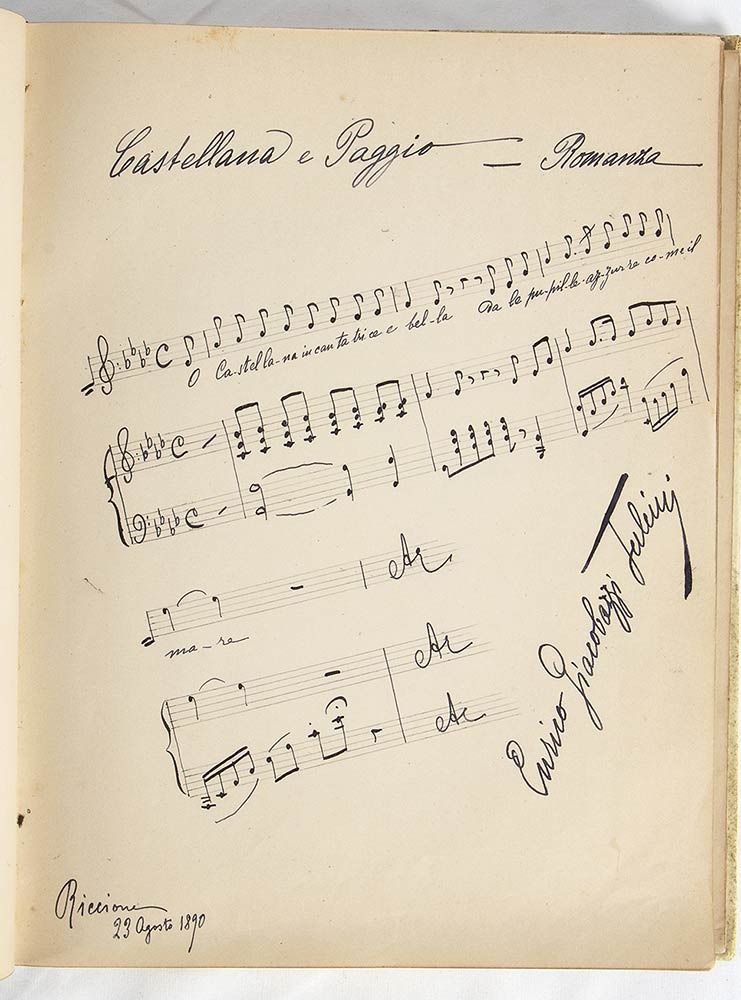 Castellana e Paggio = Romanza
O Ca-stel-la-na in can ta tri ce e bel-la Da le pu-pil-le-az-zur re co-me il
ma-re
Etc
Etc
Etc
Enrico Giacobazzi Fulcini
Riccione
23 Agosto 1890